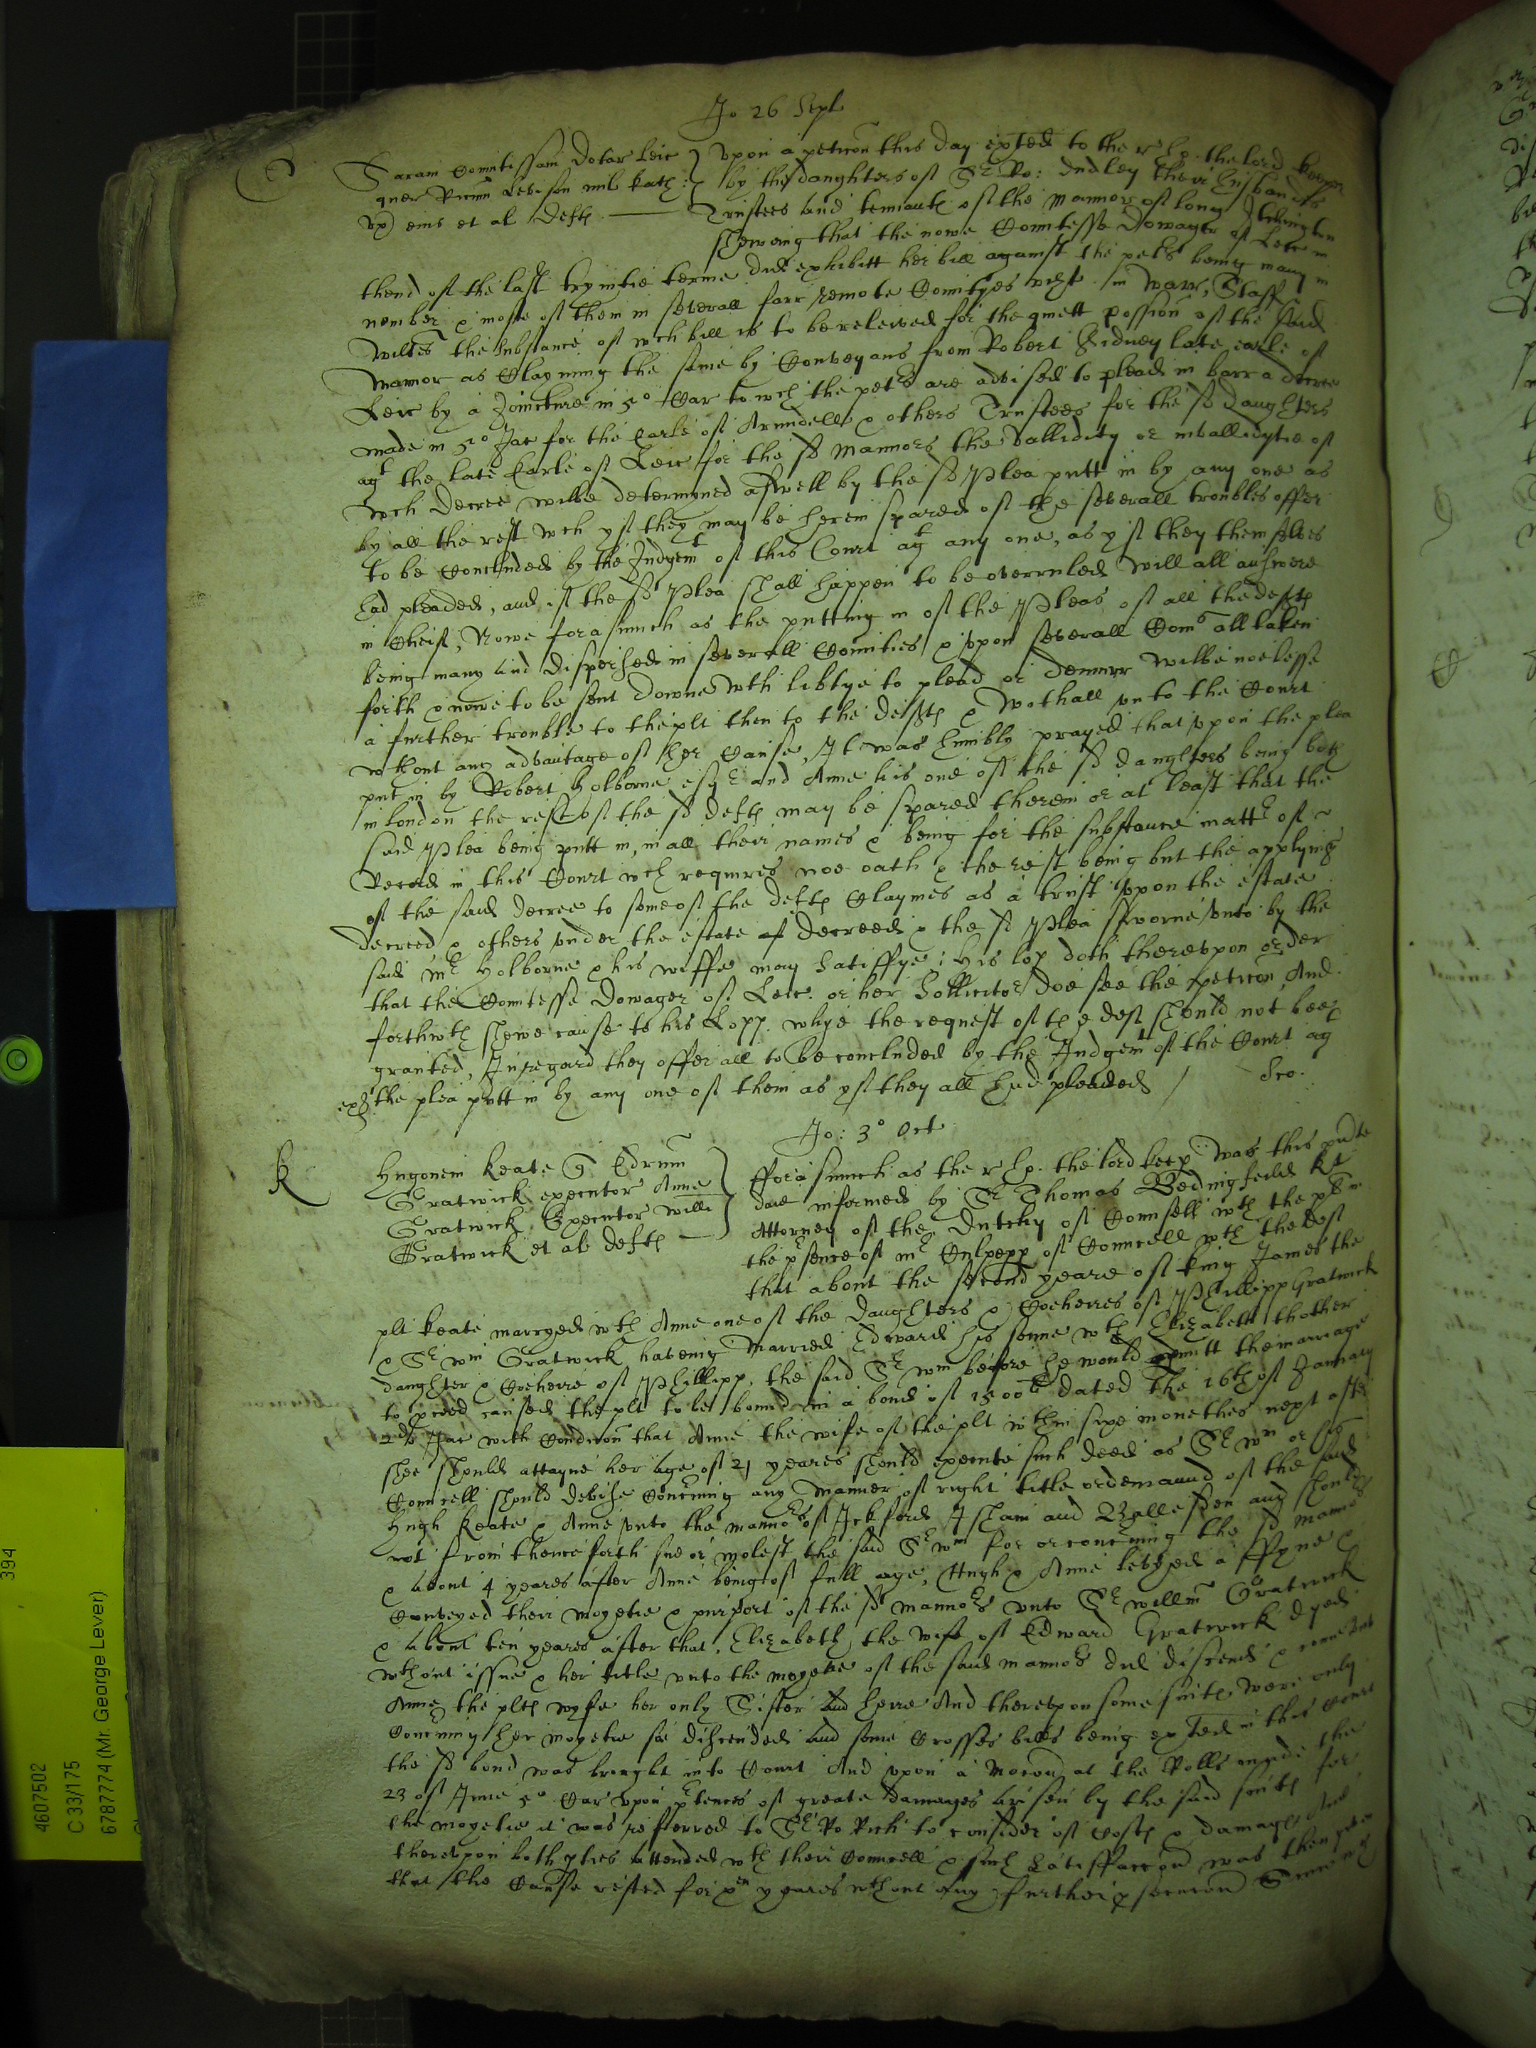 Jo 26 Sept
Saram Comitissam Dotar Leic
quer Ricum Leveson milt Kath:
ux eius et al Defts
Upon a peticon this day exhted to the r. ho. the lord keeper
by the daughters of Sr. Ro: Dudley their husbands
Trustees and tennauts of the mannor of long Itchington
shewing that the nowe Comitesse Dowager of Leic in
thend of the last trynitie terme did exhibitt her bill against the petrs being many in
nomber & moste of them in severall farr remote Countyes vizt in Warr, Staff
Wiltes the substance of wch bill is to be releived for the quiett possion of the said
Mannor as Clayming the same by Conveyans from Robert Sidney late earle of
Leic by a Joincture in 5o Car to wch the petrs are advised to plead in barr a decree
made in 5o Jac for the Earle of Arundell & others Trustees for the sd daughters
agt the late Earle of Leic for the sd Mannors the vallidity or invalliditie of
wch decree wilbe determyned aswell by the sd Plea putt in by any one as
by all the rest wch yf they may be herein spared of the severall troubles offer
to be Concluded by the Judgemt of this Court agt any one, as yf they themselves
had pleaded, and if the sd Plea shall happen to be overruled will all answere
in cheif, Nowe forasmuch as the putting in of the Pleas of all the defts
being many and dispersed in severall Counties & upon severall Coms all taken
forth & nowe to be sent downe wth libtye to plead or demurr wilbe noe lesse
a further trouble to the plt then to the defts & wothall unto the Court
wthout any advantage of her Cause, It was humbly prayed that upon the plea
put in by Robert Holborne esqr and Anne his one of the sd daughters being both
in london the rest of the sd defts may be spared therein or at least that the
said Plea being putt in, in all their names & being for the substance mattr of
Record in this Court wch requires noe oath & the rest being but the applying
of the said decree to some of the defts Claymes as a trust upon the estate
decreed & others under the estate of decreed & the sd Plea sworne unto by the
said Mr Holborne & his wiffe may satisfye; His lop doth thereupon order
that the Comtesse Dowager of Leic. or her Sollicitor doe see the peticon And
forthwth shewe cause to his Lopp. whye the request of the deft should not bee
granted, In regard they offer all to be concluded by the Judgemt of the Court agt
the plea putt in by any one of them as yf they all had pleaded
Jo: 3o Oct
K
Hugonem Keate qr Edrum
Gratwick executor Anne
Gratwick Executor Willi
Gratwick et al defts
fforasmuch as the r. ho. the lord keep was this pnte
daie informed by Sr Thomas Bedingfeild kt
Attorney of the Dutchy of Counsell wth the plt in
the psence of mr Culpepp of Councell wth the deft
that about the second yeare of king James the
plt Keate marryed wth Anne one of the daughters & Coheires of Phillipp Gratwick
& Sr wm Gratwick haveing Married Edward his sonne wth Elizabeth thother
daughter & Coheire of Phillipp, the said Sr wm before he would pmitt the marriage
to pceed caused the plt to be bound in a bond of 1500li dated the 16th of January
2do Jac with Condicon that Anne the wife of the plt wthin sixe monethes next after
shee should attayne her age of 21 yeares should execute such deed as Sr wm or his
Councell should devise Concerning any Manner of right title or demaund of the said
Hugh Keate & Anne unto the mannors of Ickford Isham and and should
not from thence forth sue or molest the said Sr wm for or concerning the sd mannors
& about 4 yeares after Anne being of full age, Hugh & Anne levyed a ffyne &
Conveyed their moyetie & purport of the sd mannors unto Sr willm Gratwick
& about ten yeares after that, Elizabeth the wife of Edward Gratwick dyed
wthout issue & her title unto the moyetie of the said mannors did discend & come unto
Anne the plts wyfe her only Sister and heire And thereupon some suits were only
Concerning her moyetie soe discended and some Crosses bills being exhted in this Court
the sd bond was brought into Court And upon a Mocon at the Rolls made the
23 of June 5o Car upon ptences of greate damages arisen by the said suits for
the moyetie it was refferred to Sr Ro Rich to consider of Costs & damages And
thereupon both pties attended wth their Councell & such satisfaccon was then
that the Cause rested for yeares wthout any further psecucon